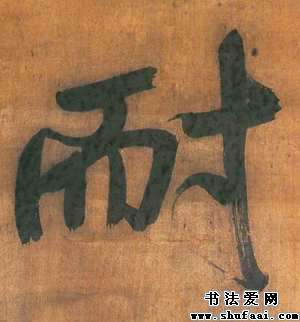 耐
书法爱网
www.shufaai.com